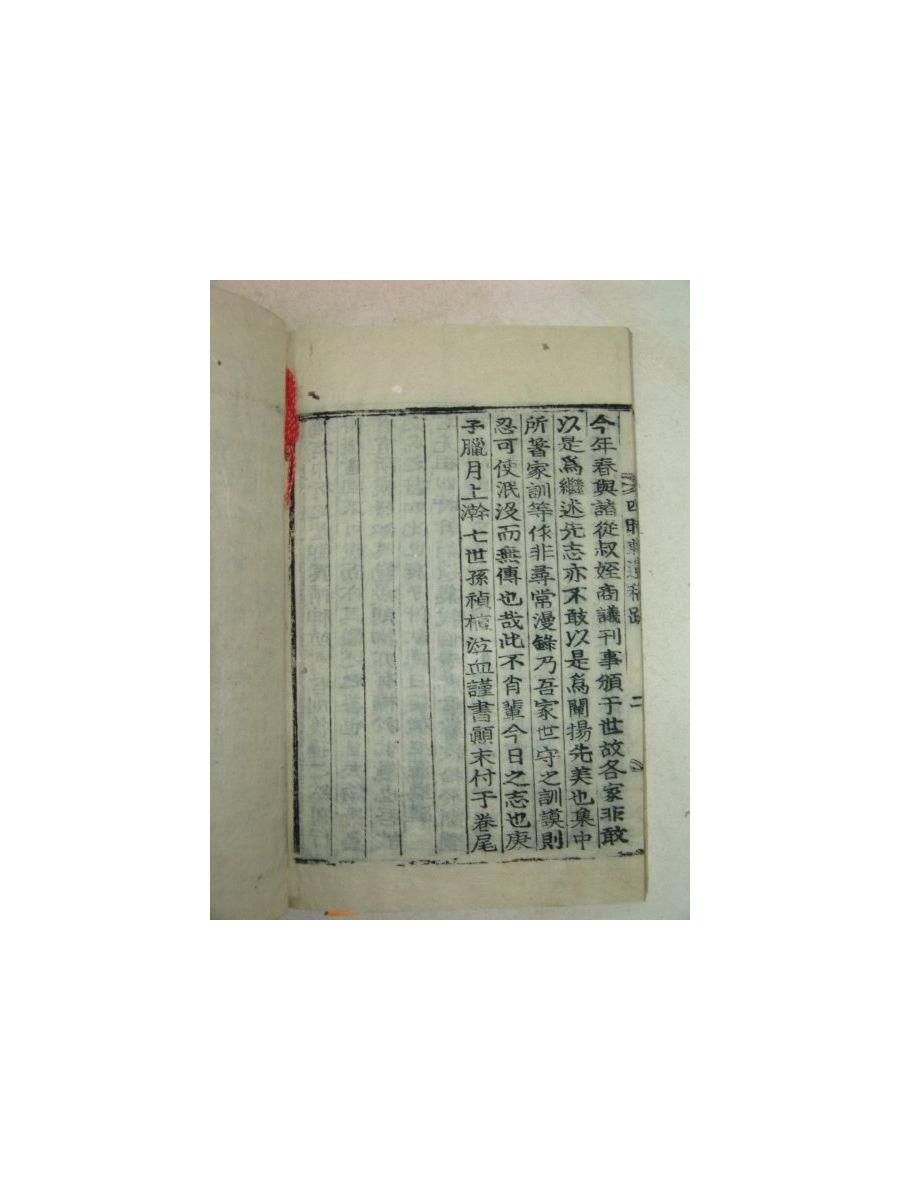 今年春與諸從叔姪商議刊事頒于世故各家非敢
以是爲繼述先志亦不敢以是爲闡揚先美也集中
所著家訓等作非尋常漫錄乃吾家世守之訓謨則
忍可使泯沒而無傳也哉此不肖輩今日之志也庚
子臘月上澣七世孫禎植泣血謹書顚末付于卷尾
四時軒遺稿跋 二